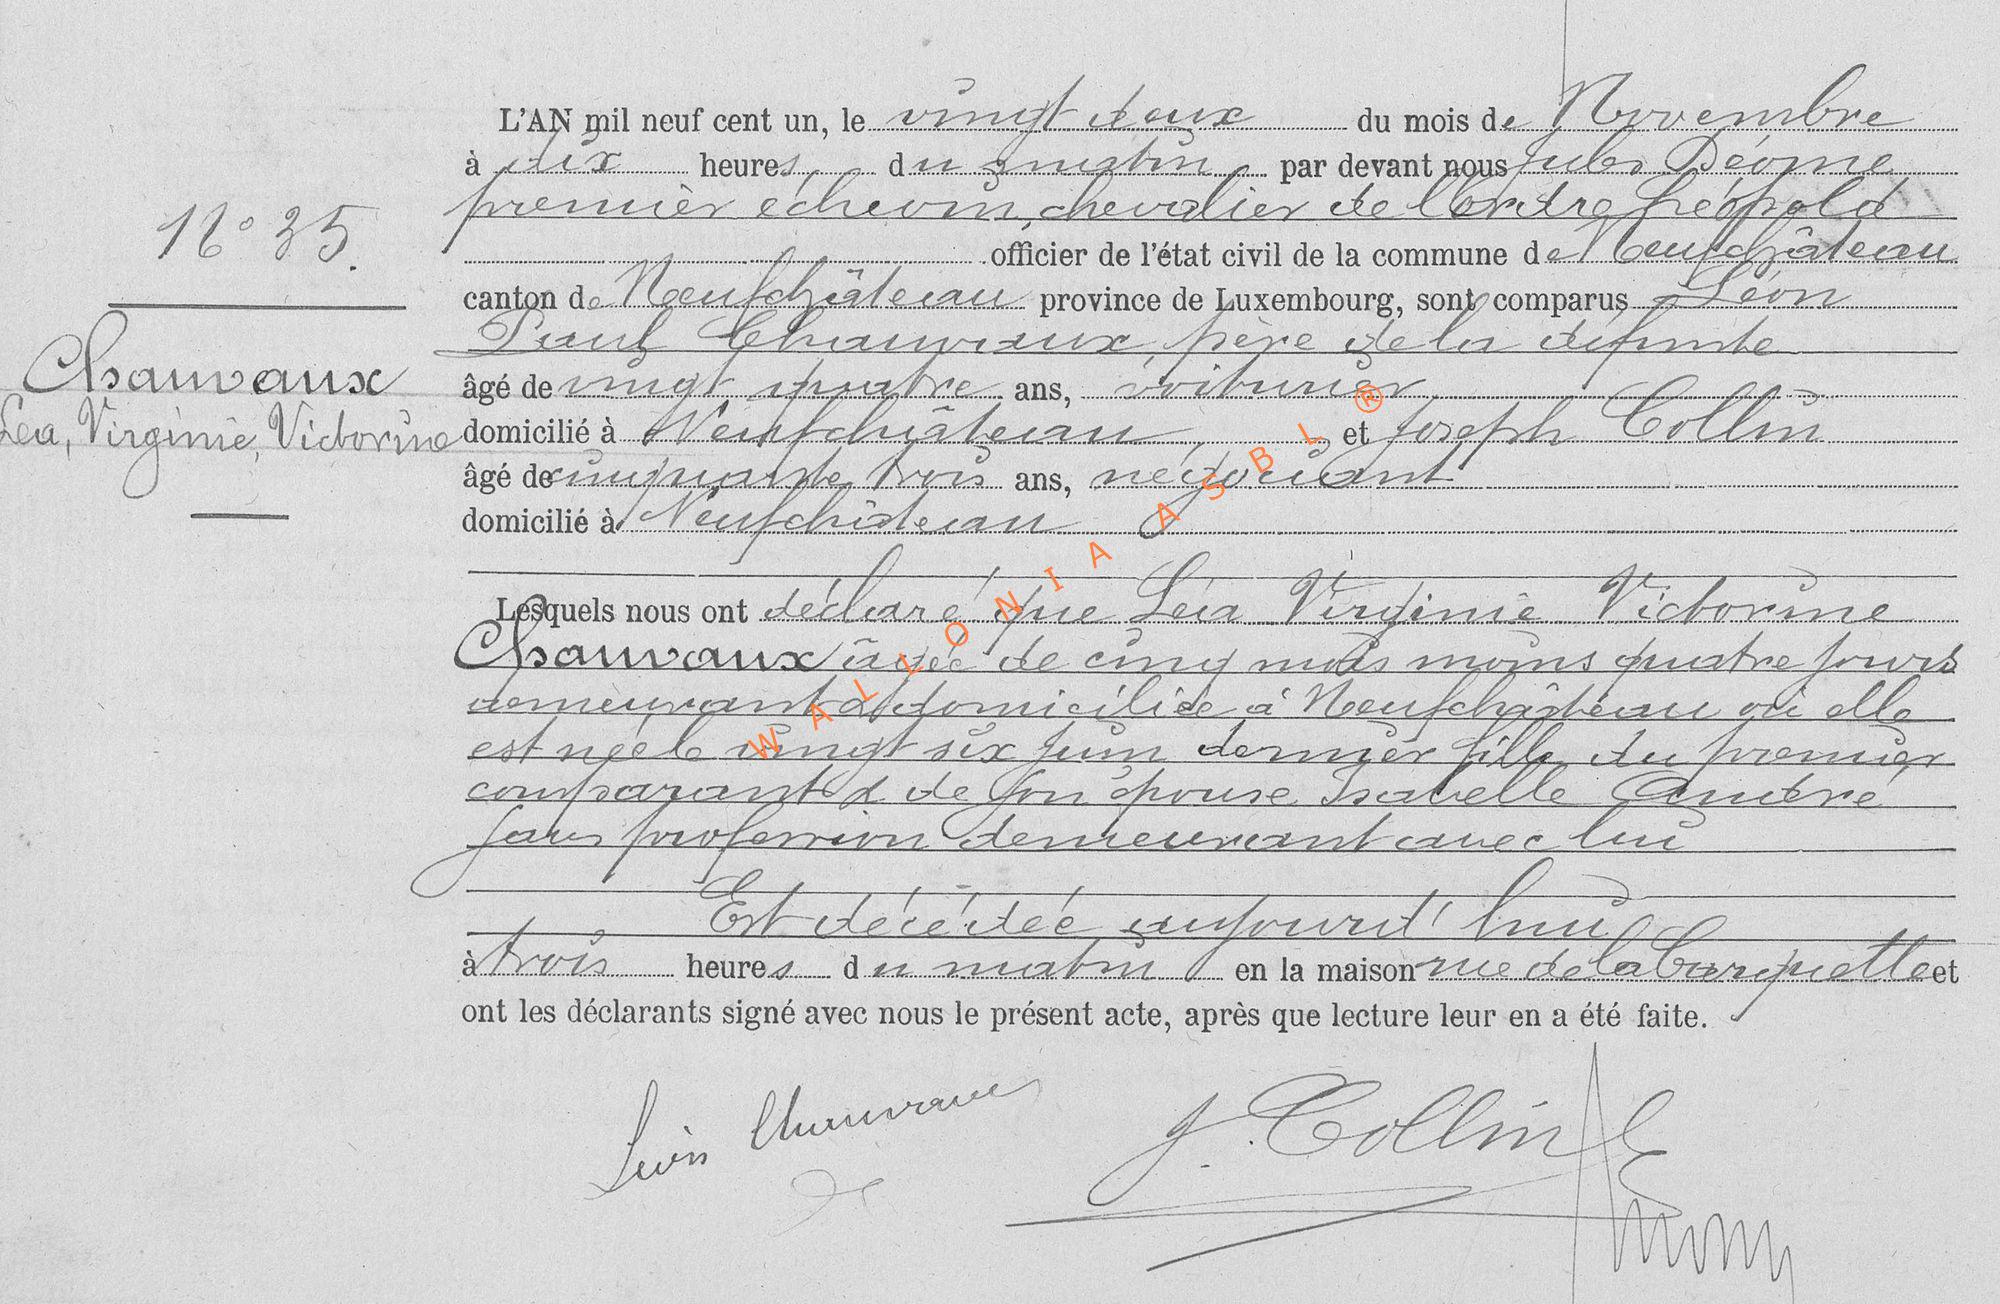 N° 35.
Chauvaux
Léa, Virginie, Victorine
L'AN mil neuf cent un, le vingt deux du mois de Novembre
à dix heures du matin par devant nous Jules Déome
premier échevin, chevalier de l'ordre Léopold
officier de l'état civil de la commune de Neufchâteau
canton de Neufchâteau province de Luxembourg, sont comparus Léon
Paul Chauvaux, père de la défunte
âgé de vingt quatre ans, voiturier
domicilié à Neufchâteau, et Joseph Collin
âgé de cinquante trois ans, négociant
domicilié à Neufchâteau
Lesquels nous ont déclaré que Léa Virginie Victorine
Chauvaux âgée de cinq mois moins quatre jours
demeurant & domiciliée à Neufchâteau où elle
est née le vingt six juin dernier fille du premier
comparant & de son épouse Isabelle André
sans profession demeurant avec lui
Est décédée aujourd'hui
à trois heures du matin en la maison rue de la Barquette et
ont les déclarants signé avec nous le présent acte, après que lecture leur en a été faite.
Léon Chauvaux
J. Collin
WALLONIA ASBL ®